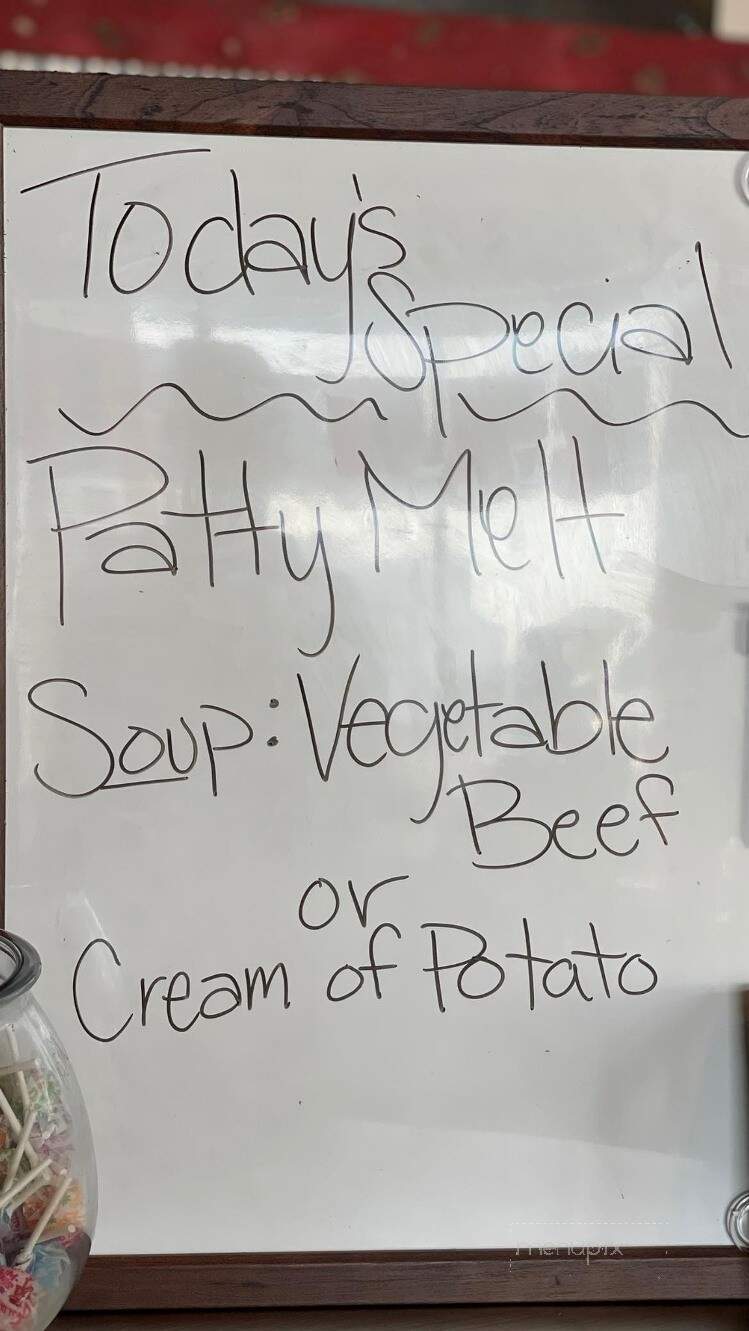 Today's
Special
Patty Melt
Soup: Vegetable
Beef
or
Cream of Potato
menupix